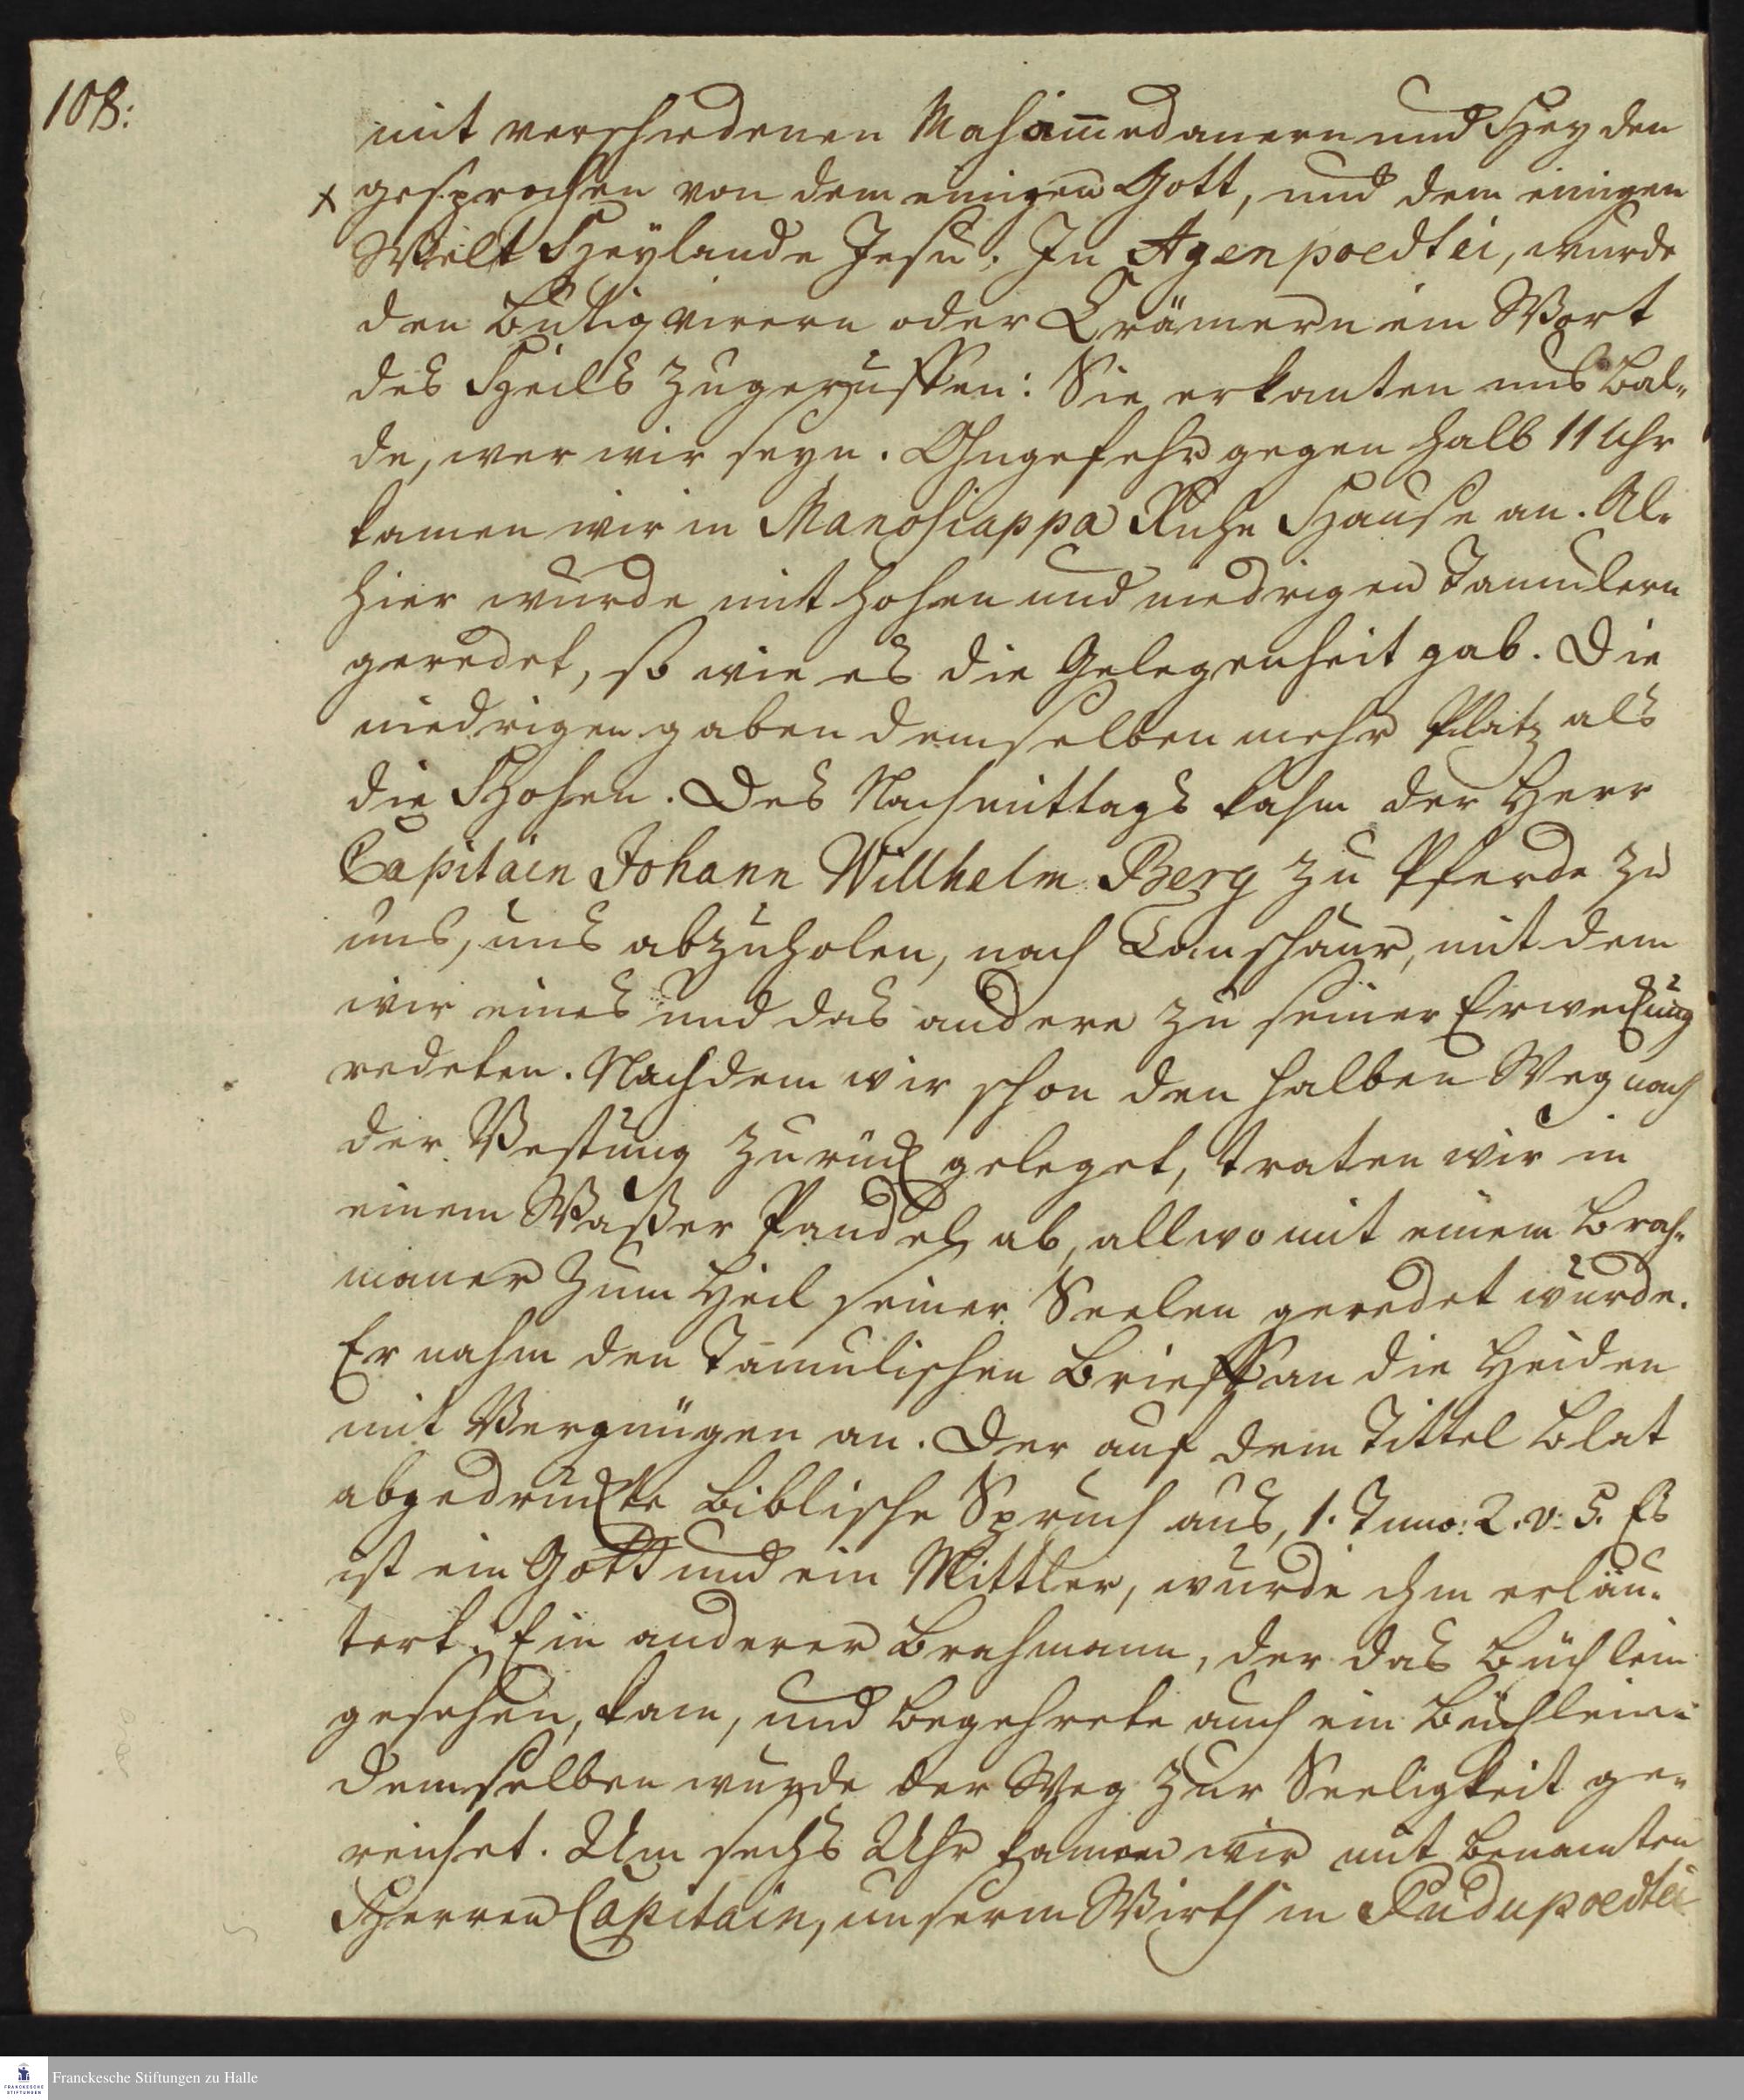 108:
mit verschiedenen Mahom̅edanern und Heyden
x gesprochen von dem einigen Gott, und dem einigen
Welt Heylande Jesu. In Agenpoedtei, wurde
den Butiqvirern oder Crämern ein Wort
des Heils zugeruffen: Sie erkanten uns bal„
de, wer wir seyn. Ohngefehr gegen halb 11 Uhr
kamen wir in Manosiappa Ruhe Hause an. Al„
hier wurde mit hohen und niedrigen Tamulern
geredet, so wie es die Gelegenheit gab. Die
niedrigen gaben demselben mehr Platz als
die Hohen. Des Nachmittags kahm der Herr
Capitäin Johann Willhelm Berg zu Pferde zu
uns, uns abzuholen, nach Tanschaur, mit dem
wir eines und das andere zu seiner Erweckung
redeten. Nachdem wir schon den halben Weg nach
der Vestung zurück geleget, traten wir in
einem Waßer Pandel ab, allwo mit einem Brah„
maner zum Heil seiner Seelen geredet wurde.
Er nahm den Tamulischen Brieff an die Heiden
mit Vergnügen an. Der auf dem Tittel Blat
abgedruckte Biblische Spruch aus, 1. Timo: 2. v: 5. Es
ist ein Gott und ein Mittler, wurde ihm erläu„
tert. Ein anderer Brahmann, der das Büchlein
gesehen, kam, und begehrete auch ein Büchlein:
demselben wurde der Weg zur Seeligkeit ge„
reichet. Um sechs Uhr kamen wir mit benamten
Herren Capitain, unserm Wirth in Pudupoedtei
Franckesche Stiftungen zu Halle
FRANCKESCHE
STIFTUNGEN